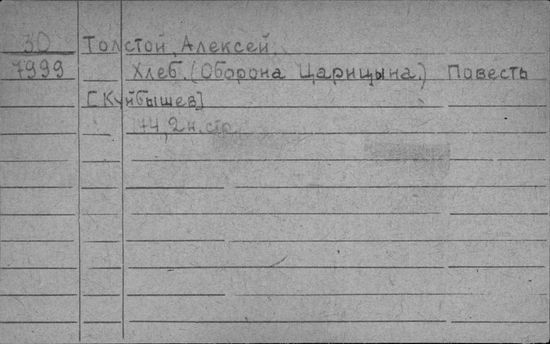 30 Толстой, Алексей
7999 Хлеб. (Оборона Царицына.) Повесть
[Куйбышев]
174, 2 н. стр.